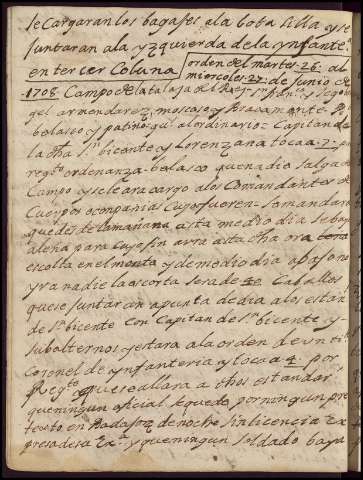 se Cargaran los bagajes a la bota silla y se
juntaran a la yzquierda de la ynfante
en tercer Coluna / orden del martes 26 al
miercoles 27 de Junio de
1708. Campo de la talaja del Rey
gel armendarez moscoso y
belasco y patiño al ordinario = Capitan de
la dha Sn bicente y Lorenzana toca a 7 por
regto ordenanza belasco que nadie salga del
Campo y se le ara cargo a los Comandantes de
Cuerpos o compañias Cuyos fueren
que desde la mañana asta medio dia se ba
a leña para Cuyo fin avra asta dha ora
escolta en el monte y de medio dia a bajo no
yra nadie la escorta sera de 40 Caballos
que se juntaran a punta de dia a los estan
de Sn bicente Con Capitan de Sn bicente y
subalternos y estara a la orden de vn ti
Coronel de ynfanteria y toca a 4 por
Regto que se allara a dhos estandar
que ningun oficial se quede por ningun pre
testo en Badajoz de noche sin licencia Ex
presa de su Exa y que ningun soldado baya